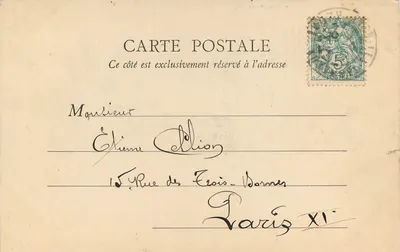 CARTE POSTALE
Ce côté est exclusivement réservé à l'adresse
Monsieur
Étienne
15 Rue des Trois-Bornes
Paris XIe